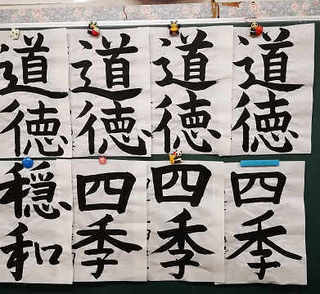 道徳
道徳
道徳
道徳
穏和
四季
四季
四季